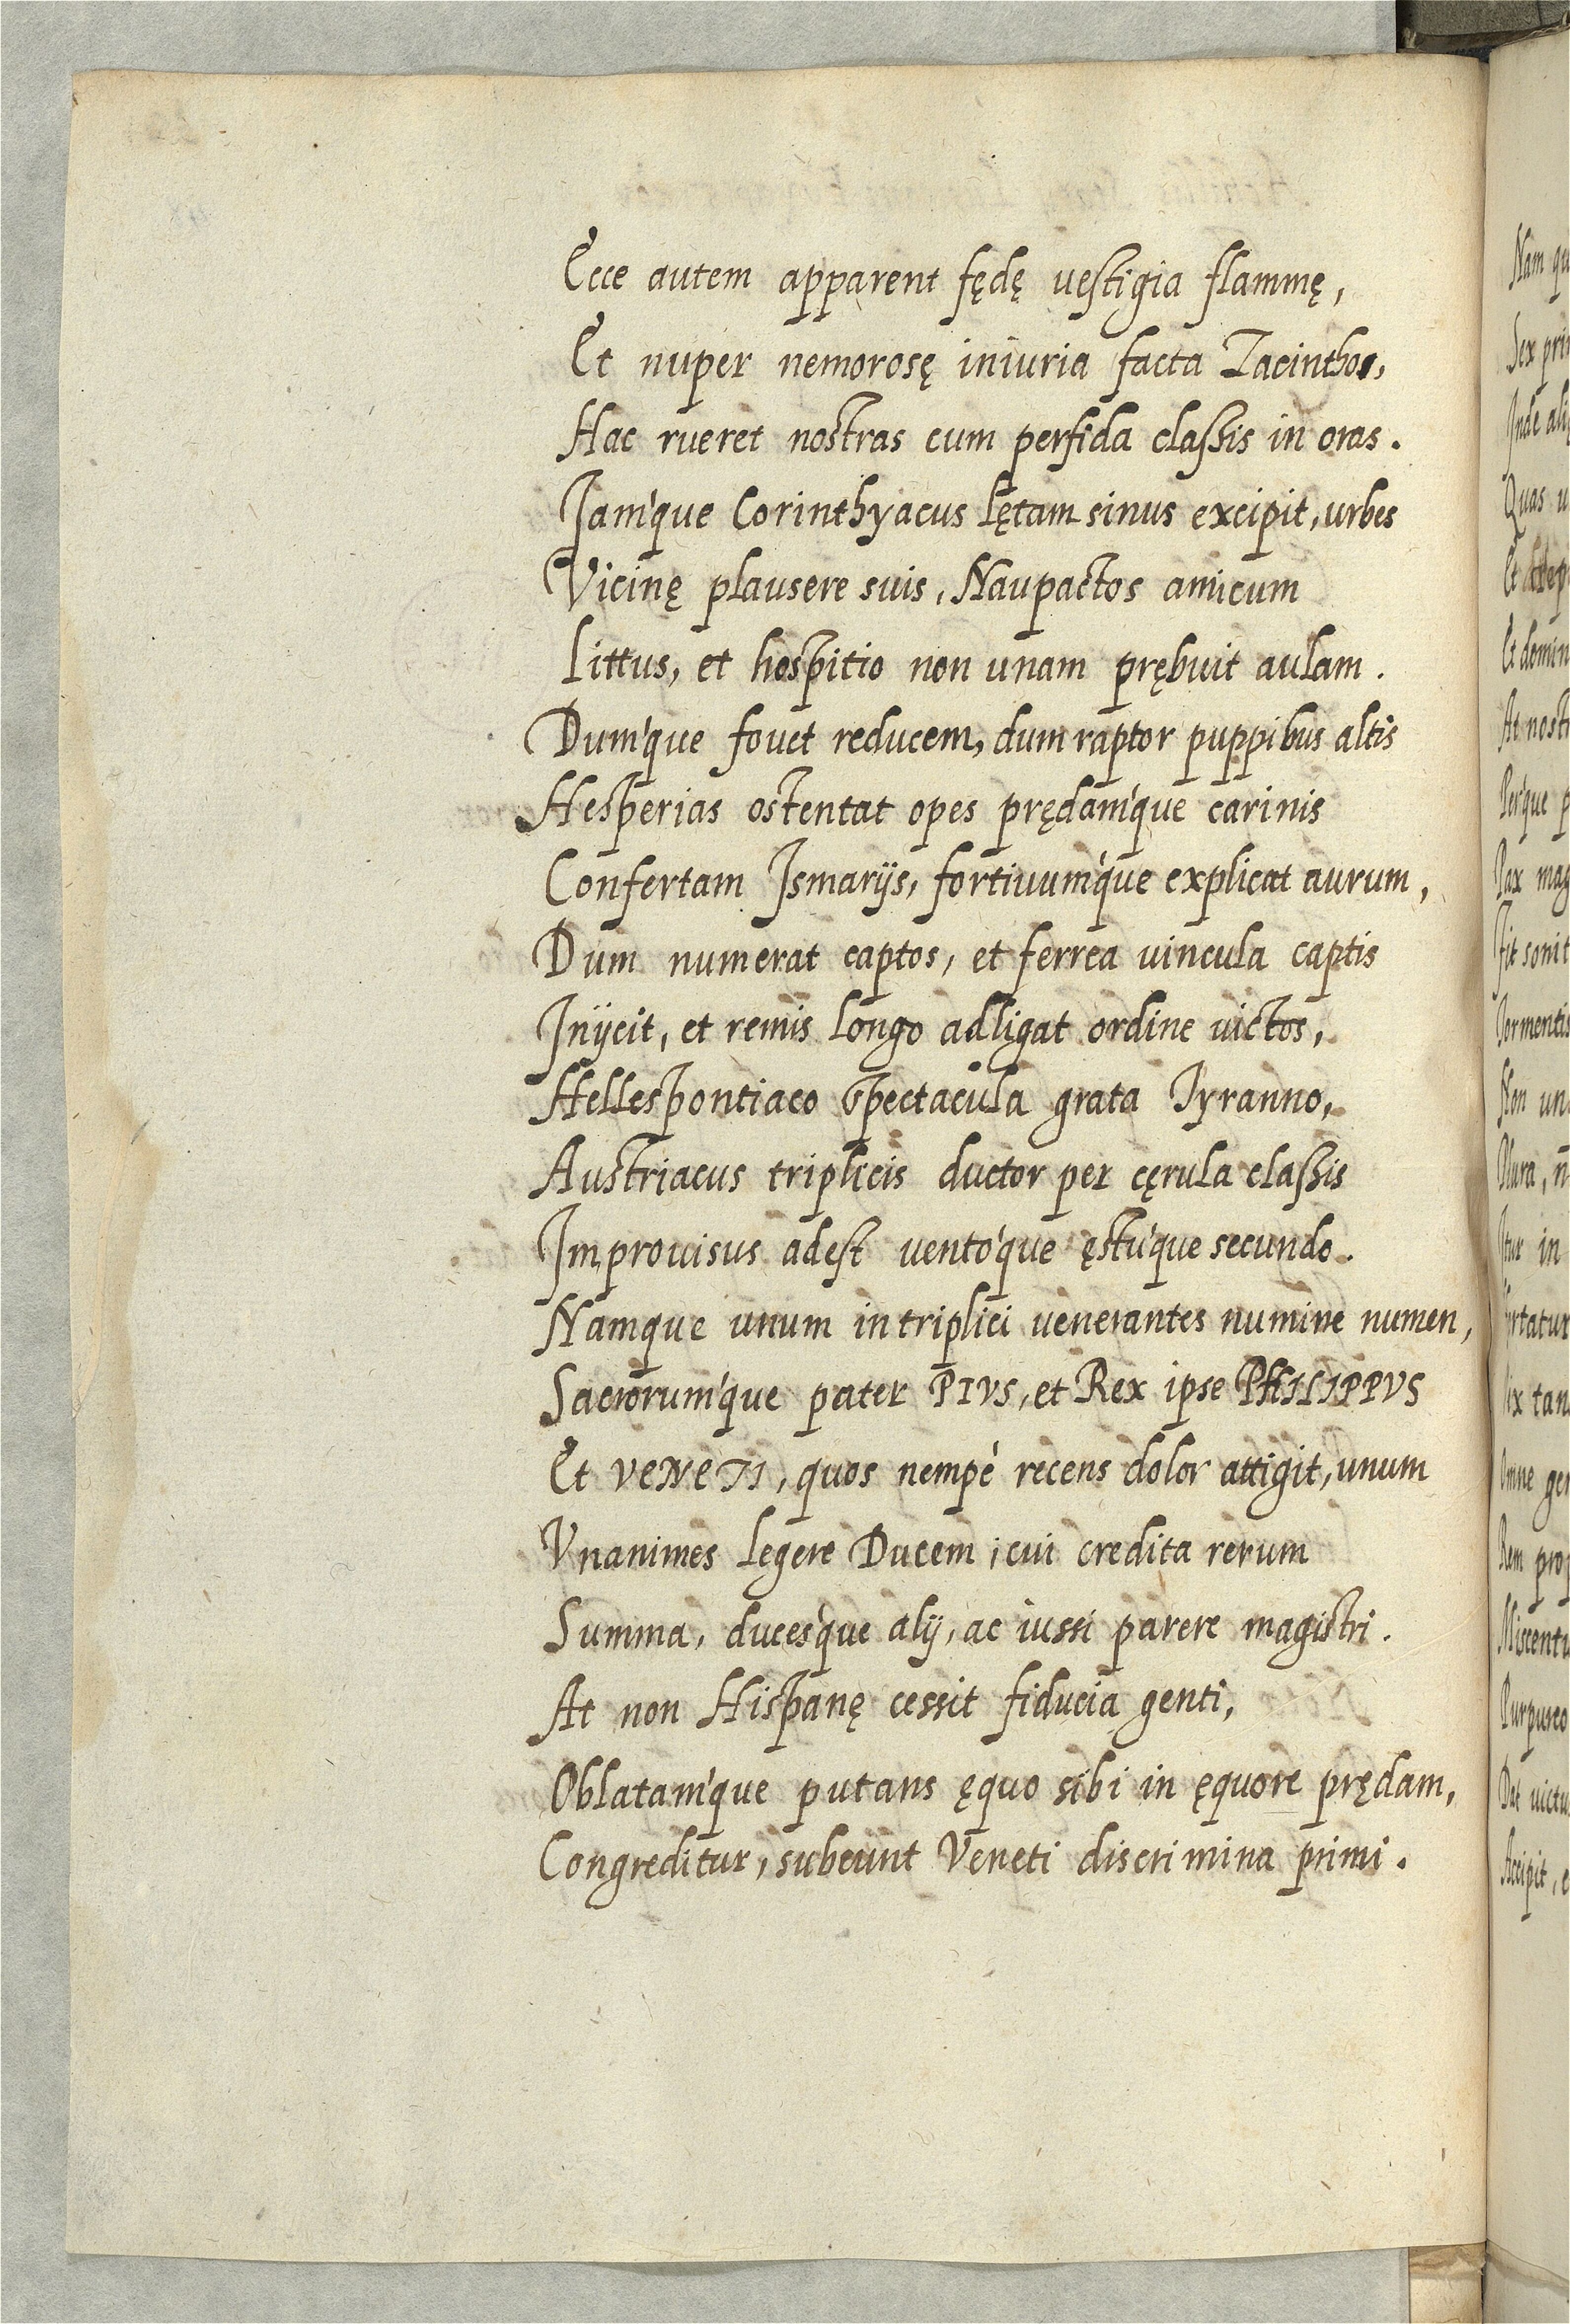 Ecce autem apparent fędę vestigia flammę,
Et nuper nemorosę iniuria facta Zacinthos,
Hac rueret nostras cum perfida classis in oras.
Jam'que Corinthyacus lętam sinus excipit, urbes
Vicinę plausere suis, Naupactos amicum
Littus, et hospitio non unam prębuit aulam.
Dum'que fouet reducem, dum raptor puppibus altis
Hesperias ostentat opes prędam'que carinis
Confertam Jsmarijs, fortiuum'que explicat aurum,
Dum numerat captos, et ferrea uincula captis
Jnijcit, et remis longo adligat ordine uictos,
Hellespontiaco spectacula grata Tyranno,
Austriacus triplicis ductor per cęrula classis
Jmprouisus adest uento'que ęstu'que secundo.
Namque unum in triplici uenerantes numine numen,
Sacrorum'que pater PIVS, et Rex ipse PHILIPPVS
Et VENETI, quos nempè recens dolor attigit, unum
Vnanimes legere Ducem, cui credita rerum
Summa, duces'que alij, ac iussi parere magistri.
At non Hispanę cessit fiducia genti,
Oblatam'que putans ęquo sibi in ęquore prędam,
Congreditur, subeunt Veneti discrimina primi.
Nam
Sex
Jnde
Quas
Et
Et
At
Per'que
Pax
Fit
Tormentis
Non
Jtur in
Vix
Omne
Rem
Purpureo
Dat
Accipit,